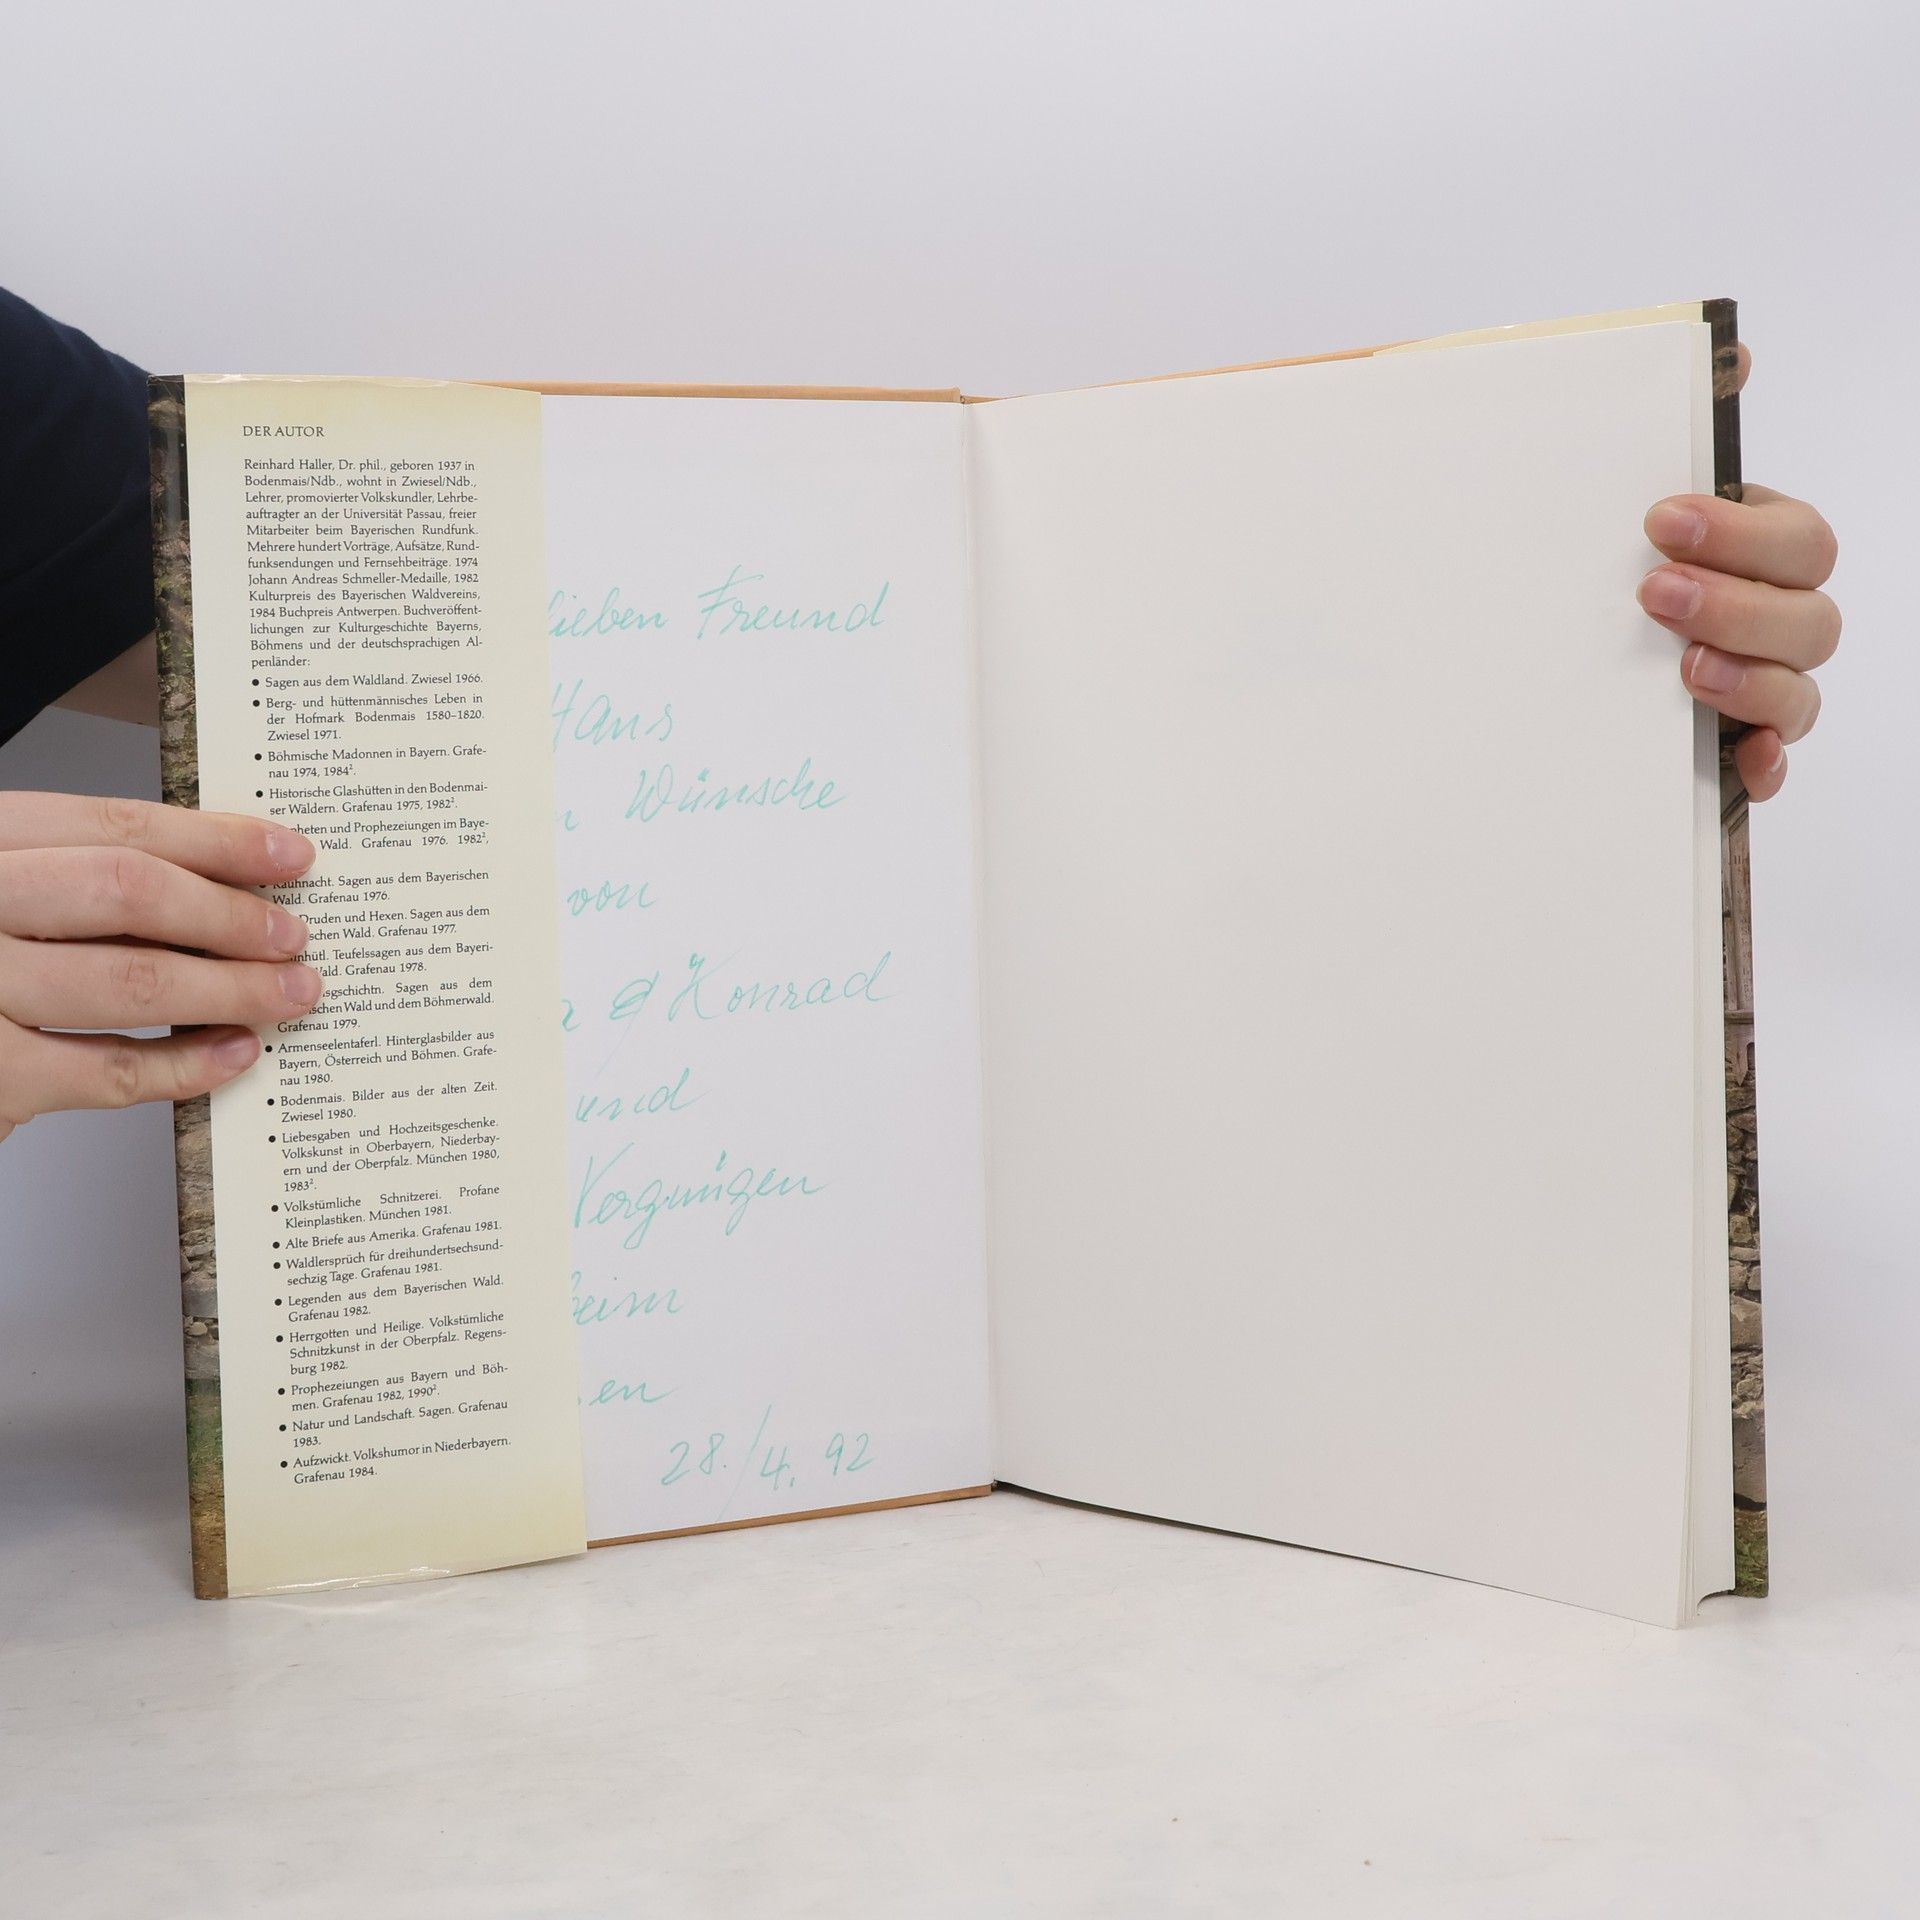 DER AUTOR
Reinhard Haller, Dr. phil., geboren 1937 in
Bodenmais/Ndb., wohnt in Zwiesel/Ndb.,
Lehrer, promovierter Volkskundler, Lehrbe-
auftragter an der Universität Passau, freier
Mitarbeiter beim Bayerischen Rundfunk.
Mehrere hundert Vorträge, Aufsätze, Rund-
funksendungen und Fernsehbeiträge. 1974
Johann Andreas Schmeller-Medaille, 1982
Kulturpreis des Bayerischen Waldvereins,
1984 Buchpreis Antwerpen. Buchveröffent-
lichungen zur Kulturgeschichte Bayerns,
Böhmens und der deutschsprachigen Al-
penländer:
● Sagen aus dem Waldland. Zwiesel 1966.
● Berg- und hüttenmännisches Leben in
der Hofmark Bodenmais 1580–1820.
Zwiesel 1971.
● Böhmische Madonnen in Bayern. Grafe-
nau 1974, 1984².
● Historische Glashütten in den Bodenmai-
ser Wäldern. Grafenau 1975, 1982².
pheten und Prophezeiungen im Baye-
Wald. Grafenau 1976. 1982²,
● Rauhnacht. Sagen aus dem Bayerischen
Wald. Grafenau 1976.
Druden und Hexen. Sagen aus dem
schen Wald. Grafenau 1977.
nhütl. Teufelssagen aus dem Bayeri-
Wald. Grafenau 1978.
sgschichtn. Sagen aus dem
schen Wald und dem Böhmerwald.
Grafenau 1979.
● Armenseelentaferl. Hinterglasbilder aus
Bayern, Österreich und Böhmen. Grafe-
nau 1980.
● Bodenmais. Bilder aus der alten Zeit.
Zwiesel 1980.
● Liebesgaben und Hochzeitsgeschenke.
Volkskunst in Oberbayern, Niederbay-
ern und der Oberpfalz. München 1980,
1983².
● Volkstümliche Schnitzerei. Profane
Kleinplastiken. München 1981.
● Alte Briefe aus Amerika. Grafenau 1981.
● Waldlersprüch für dreihundertsechsund-
sechzig Tage. Grafenau 1981.
● Legenden aus dem Bayerischen Wald.
Grafenau 1982.
● Herrgotten und Heilige. Volkstümliche
Schnitzkunst in der Oberpfalz. Regens-
burg 1982.
● Prophezeiungen aus Bayern und Böh-
men. Grafenau 1982, 1990².
● Natur und Landschaft. Sagen. Grafenau
1983.
● Aufzwickt. Volkshumor in Niederbayern.
Grafenau 1984.
lieben Freund
Hans
n Wünsche
von
& Konrad
und
Vergnügen
beim
en
28./4. 92